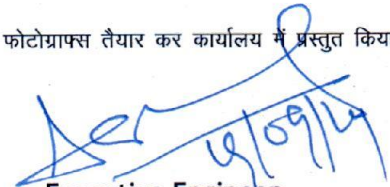 फोटोग्राफ्स तैयार कर कार्यालय में प्रस्तुत किय
Executive Engineer